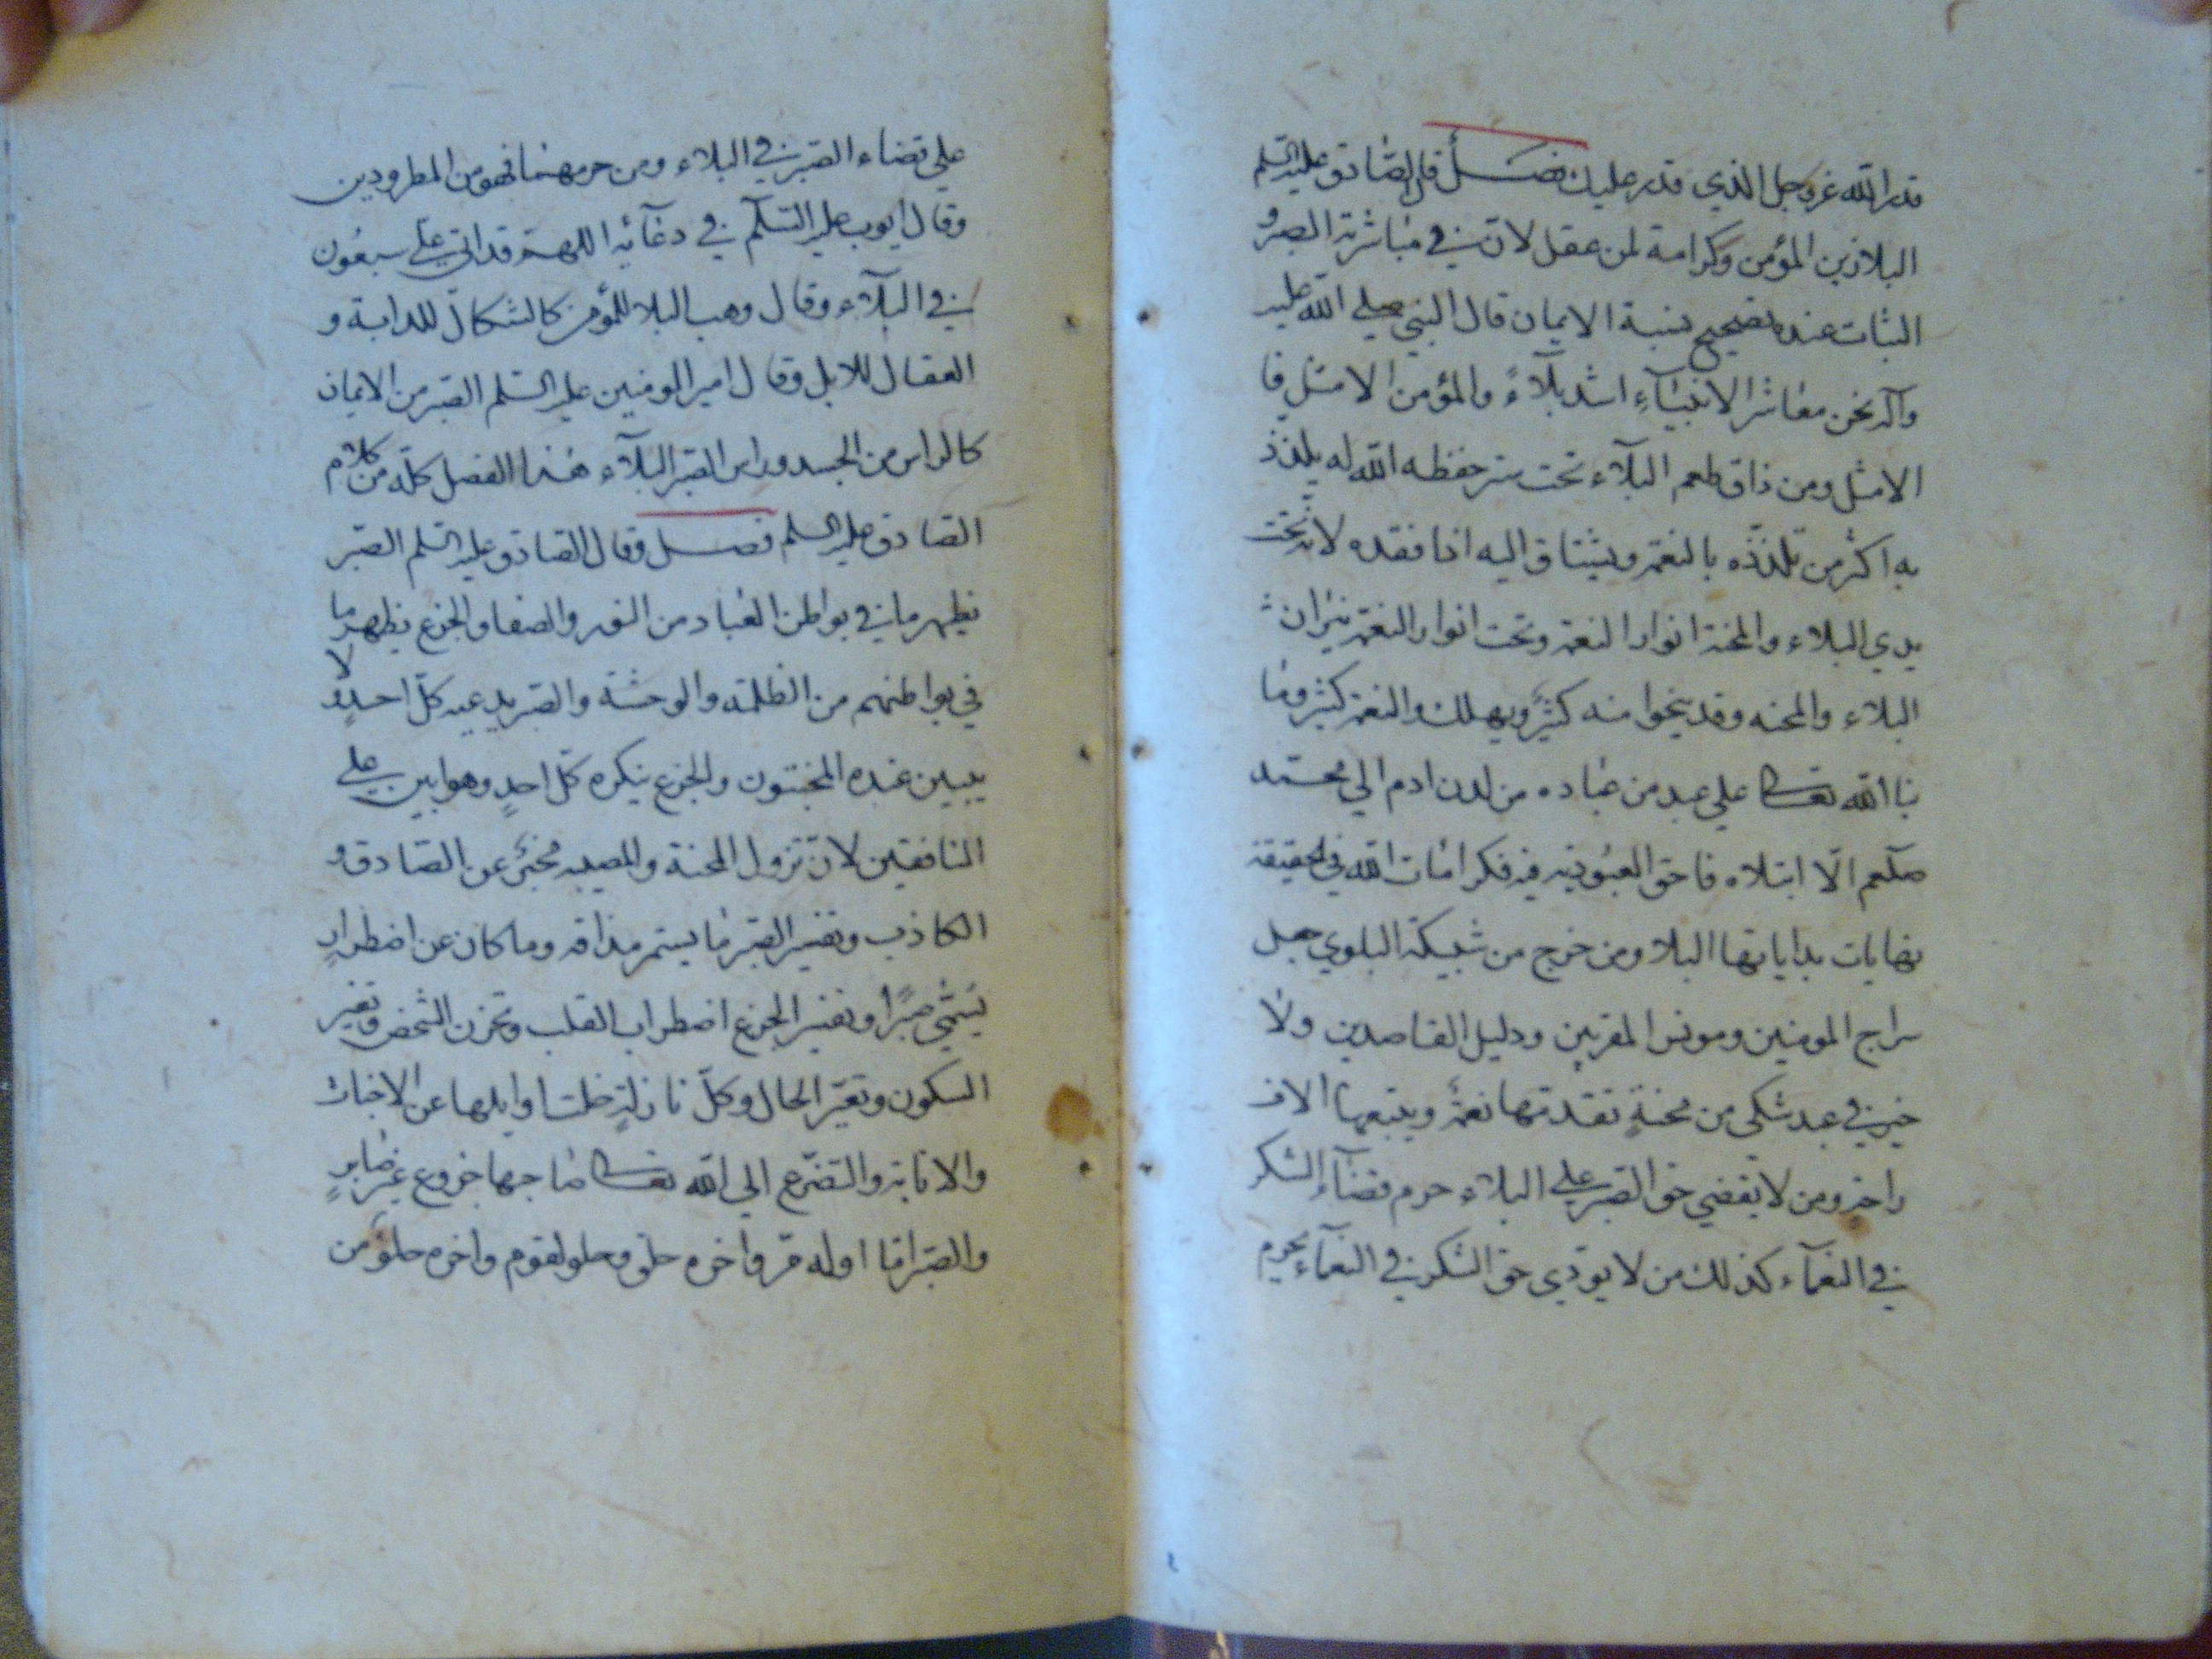 قدر الله عز وجل الذي قدر عليك فصل قال الصادق عليه السلم
البلا زين المؤمن وكرامة لمن عقل لان في مباشرته الصبر و
الثبات عنده تصحيح نسبة الايمان قال النبي صلى الله عليه
وآله نحن معاشر الانبياء اشد بلاءً والمؤمن الامثل فا
الامثل ومن ذاق طعم البلآء تحت ستر حفظه الله له يلذذ
به اكثر من تلذذه بالنعمة ويشتاق اليه اذا فقده لان تحت
يدي البلاء والمحنة انوار النعمة وتحت انوار النعمة نيران
البلاء والمحنه وقد ينجوا منه كثير ويهلك والنعمة كثير وما
بنا الله تعالى علي عبد من عباده من لدن ادم الي محمد
صلعم الّا ابتلاه فا حق العبودية فيه فكرامات الله في الحقيقة
نهايات بداياتها البلا ومن خرج من شبيكة البلوي جعل
سراج المومنين ومونس المقربين ودليل القاصدين ولا
خير في عبد شكي من محنةٍ تقدمتها نعمة ويتبعها الاف
راحة ومن لا يقضي حق الصبر علي البلاء حرم قضآء الشكر
في النعمآء كذلك من لا يودي حق الشكر في النعمآء يحرم
علي قضاء الصبر في البلاء ومن حرمهما فهو من المطرودين
وقال ايوب عليه السلم في دعآئه اللهم قد اتي علي سبعون
في البلآء وقال وهب البلا للمؤمن كالشكال للدابة و
العقال للابل وقال امير المومنين عليه السلم الصبر من الايمان
كالراس من الجسد وراس الصبر البلآء هذا الفصل كله من كلام
الصادق عليه السلم فصل وقال الصادق عليه السلم الصبر
يظهر ما في بواطن العباد من النور والصفا والجزع يظهر ما
في بواطنهم من الظلمة والوحشة والصبر يدعيه كل احد ولا
يبين عنده المخبتون والجزع ينكره كل احدٍ وهو ابين علي
النافقين لان نزول المحنة والمصيبه مخبر عن الصادق و
الكاذب وتفسير الصبر ما يستمر مذاقه وما كان عن اضطرارٍ
يسمي صبراً وتفسير الجزع اضطراب القلب وتحزن الشخص وتغير
السكون وتغير الحال وكل نازلةٍ خلت اوايلها عن الاخبات
والانابة والتضرع الي الله تعالى صاحبها جزوع غير صابرٍ
والصبر اما اوله مر واخره حلو وحلو لقوم واخره حلو من